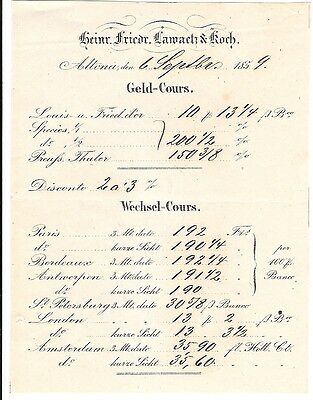 Heinr. Friedr. Lawaetz & Koch.
Altona, den 6 Septbr 1859.
Geld-Cours.
Louis- u. Fried.d'or 10 ß 13 1/4 ß Bco
Species, 1/1 %
do 1/2 200 1/2 %
Preuß. Thaler 150 3/8 %
Disconto 2 a 3 %
Wechsel-Cours.
Paris 3 Mt. dato 192 Fcs
do kurze Sicht 190 1/4
Bordeaux 3 Mt. dato 192 1/4 per
Antwerpen 3 Mt. dato 191 1/2 100 ß
do kurze Sicht 190 Banco
St. Petersburg 3 Mt. dato 30 5/8 ß Banco
London 3 Mt. dato 13 ß 2 ß Bco
do kurze Sicht 13 3 1/2
Amsterdam 3 Mt. dato 35,90 fl. Holl. Ct.
do kurze Sicht 35,60